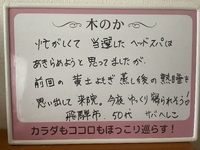 木のか
忙がしくて 当選した ヘッドスパは
あきらめようと思ってましたが、
前回の 黄土よもぎ蒸し後の 熱睡を
思い出して 来院。今夜 ゆっくり寝られそう!
飛騨市. 50代 サバへしこ
カラダもココロもほっこり巡らす!